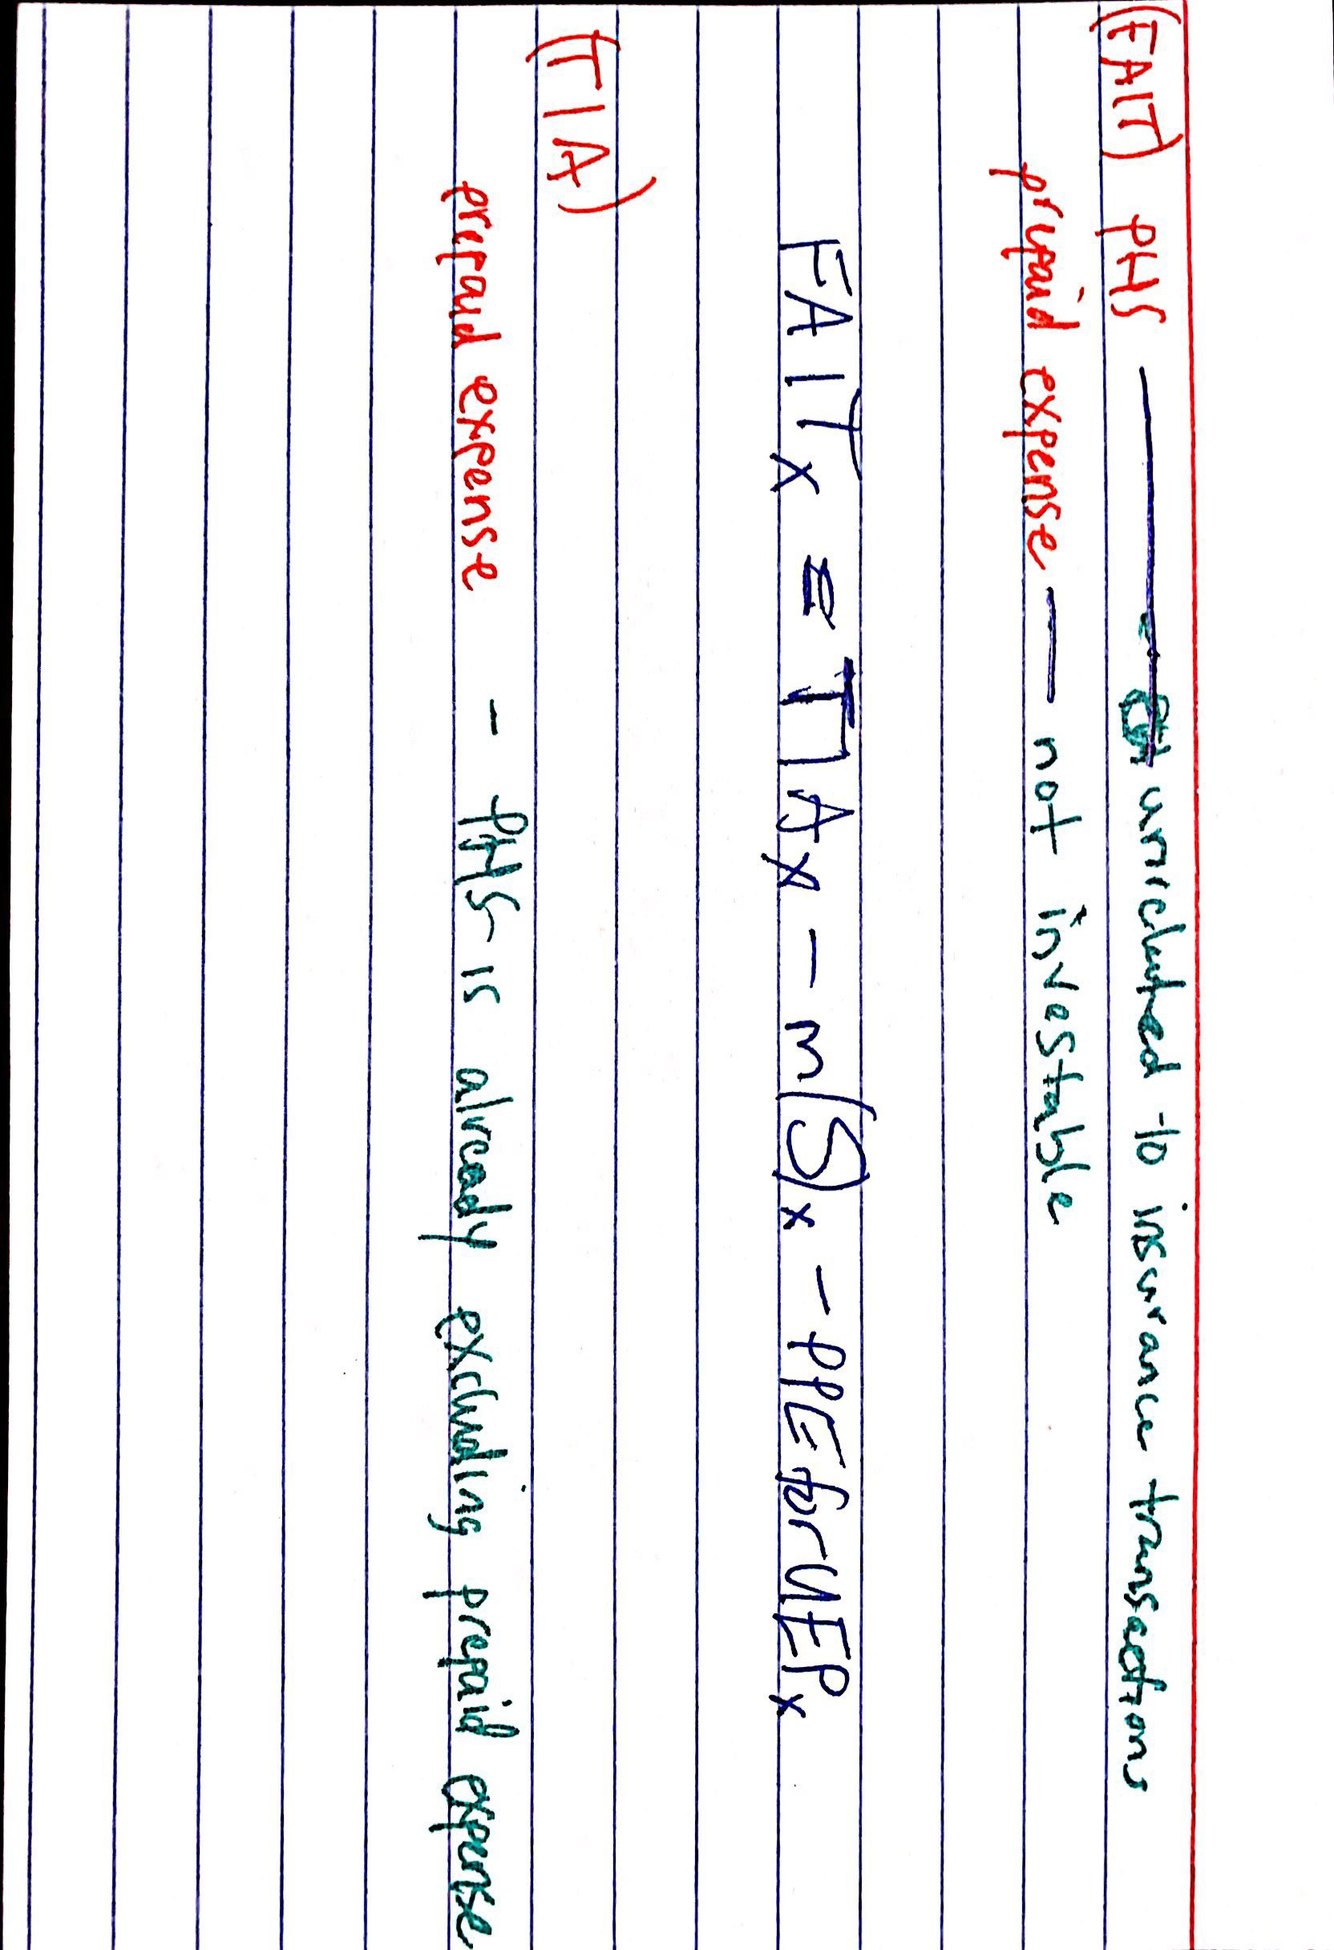 (FAIT) PHS — unrelated to insurance transactions
prepaid expense — not investable
FAIT x = TIA x - m(S) x - PPE for UEP x
(TIA)
prepaid expense - PHS is already excluding prepaid expense